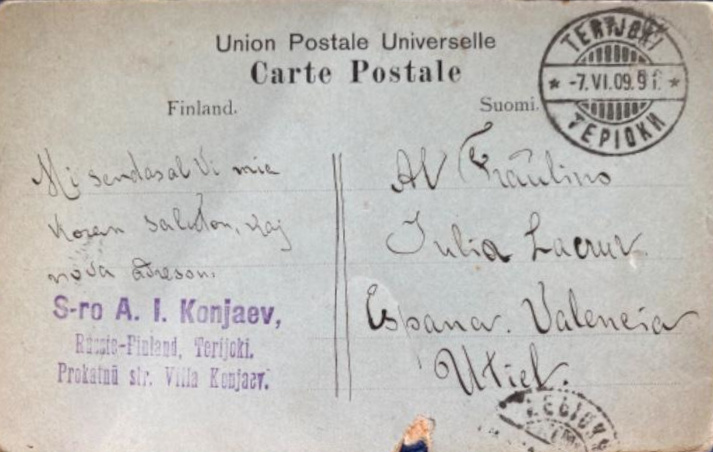 Union Postale Universelle
Carte Postale
Finland.
Suomi.
TERIJOKI
-7.VI.09.9 f.
ТЕРІОКИ
Mi sendas al Vi mia
koran saluton, kaj
nova adreson.
S-ro A. I. Konjaev,
Russie-Finland, Terijoki.
Prokatnŭ str. Villa Konjaev.
Al Fraŭlino
Julia Lacruz
Espana. Valencia
Utiel.